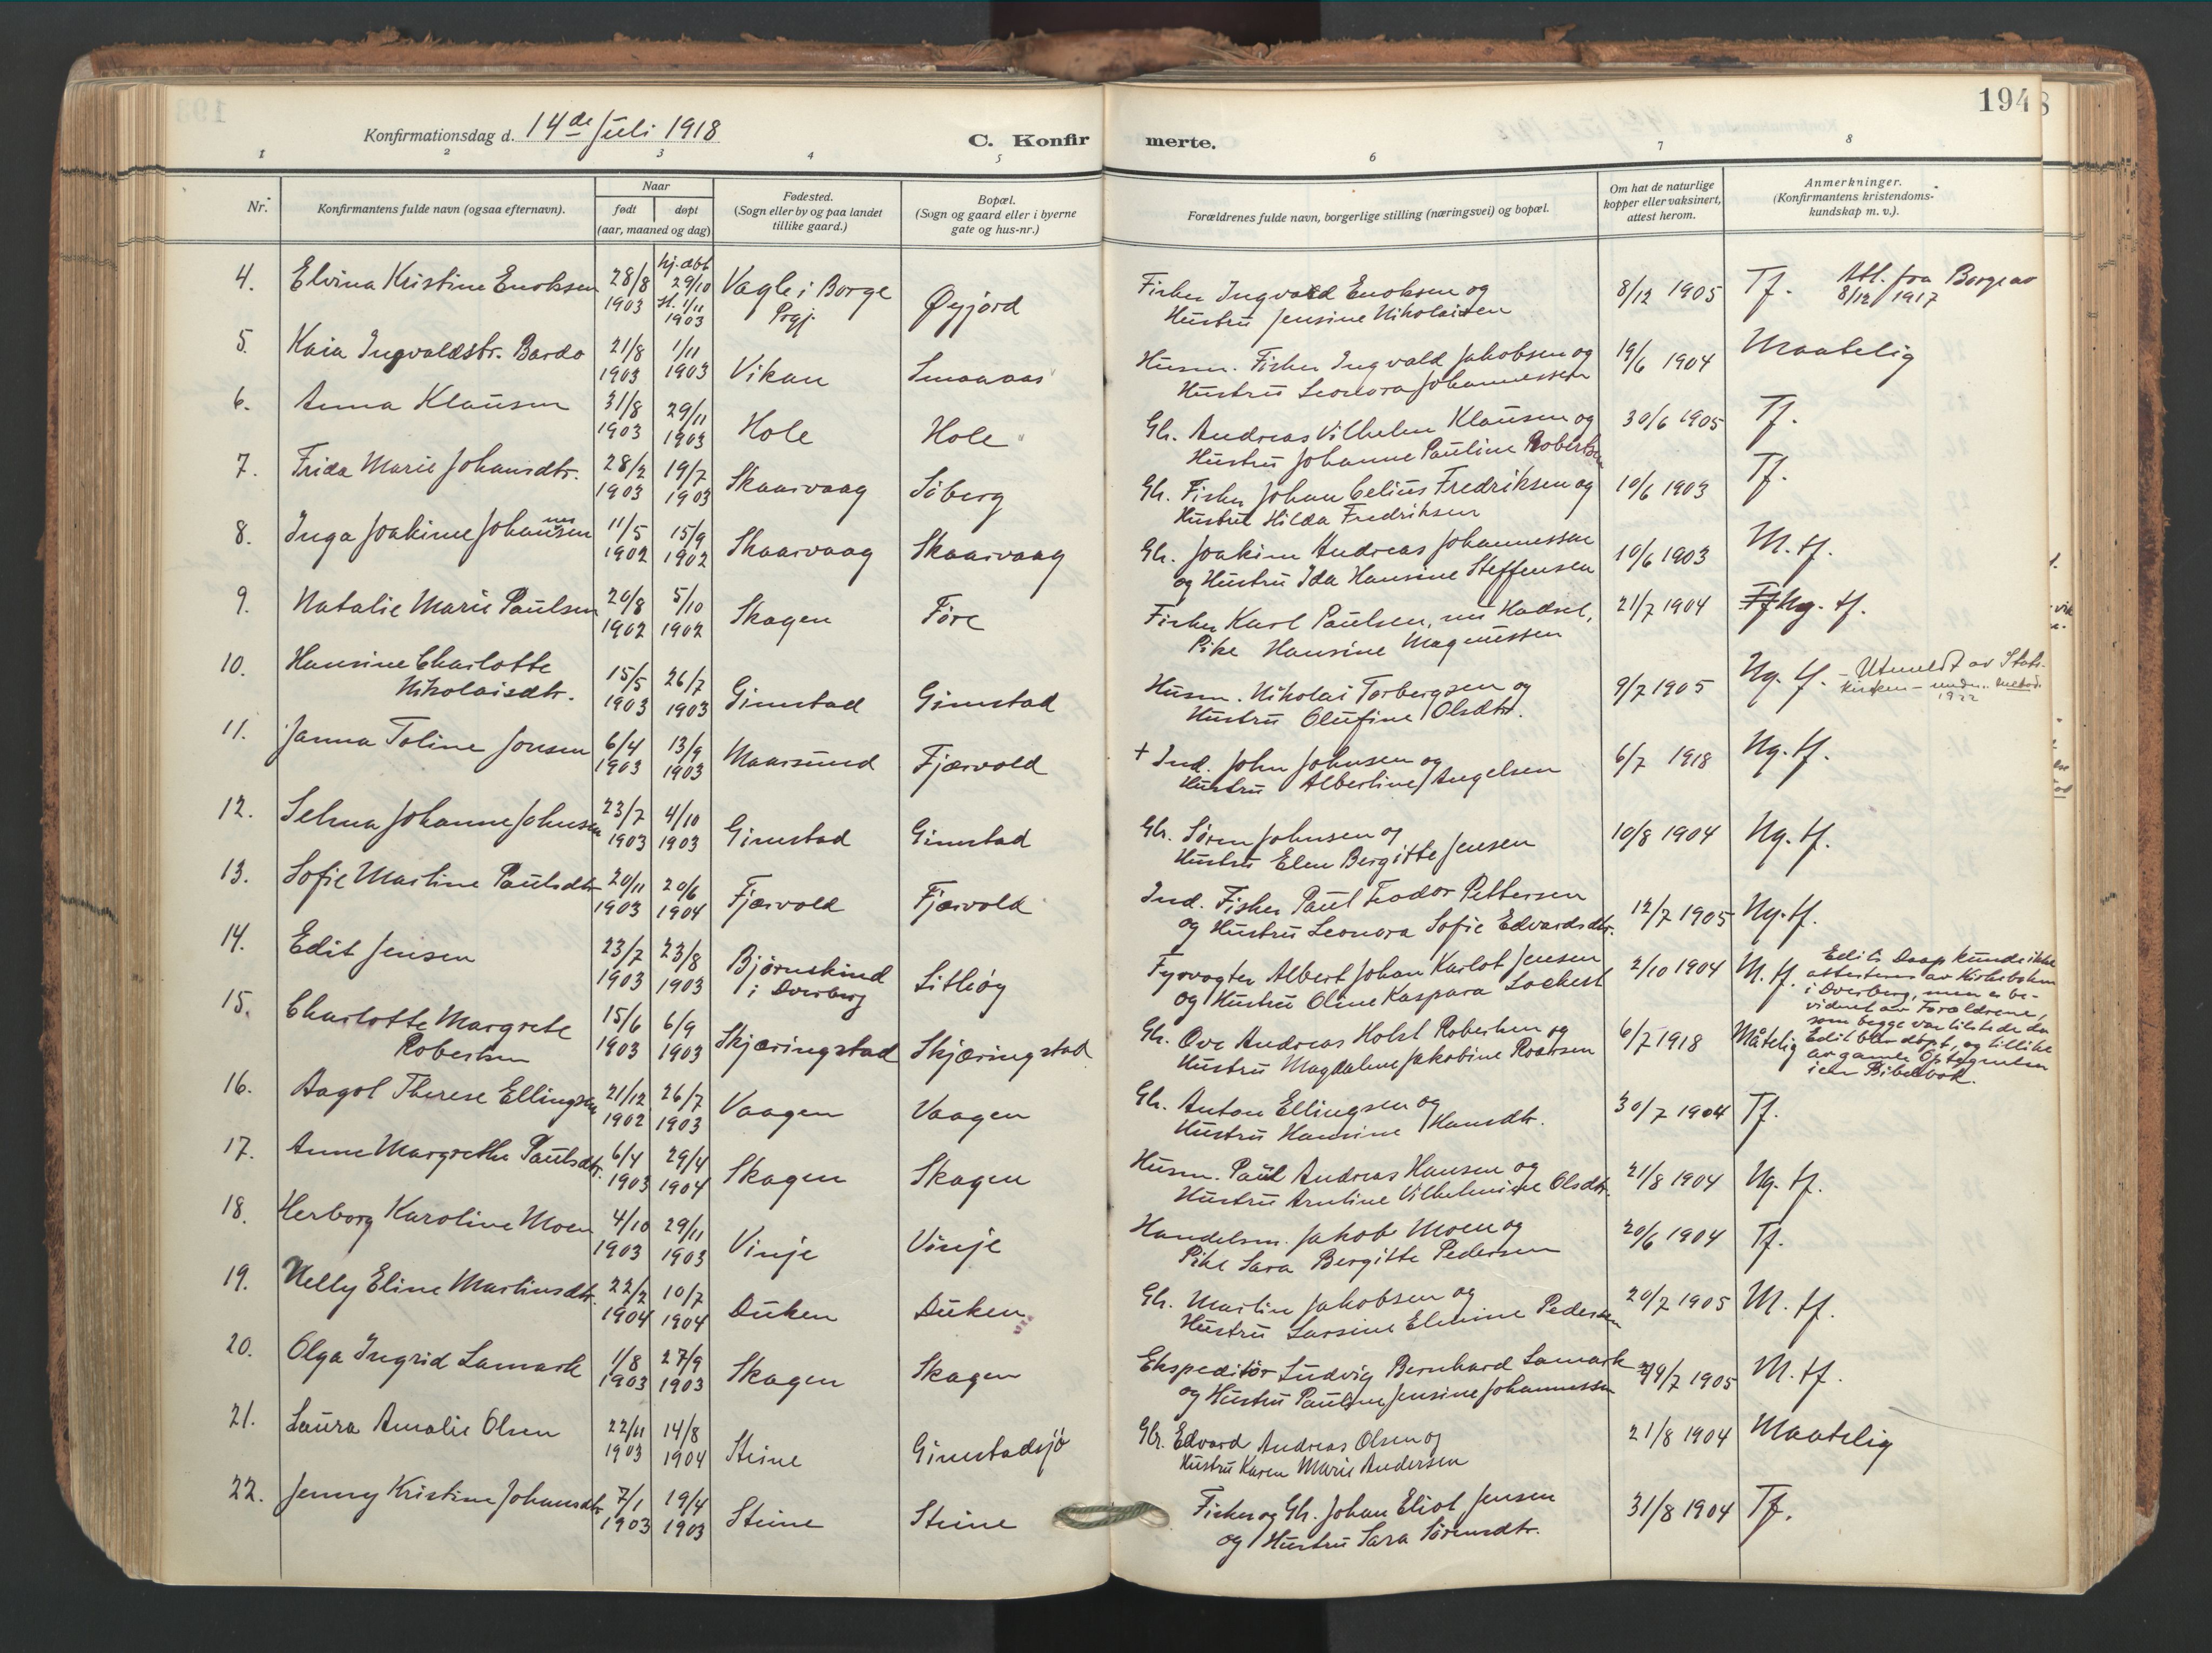 194
Konfirmationsdag d. 14de Juli 1918
C. Konfirmerte.
1 2 3 4 5 6 7 8
Nr. Konfirmantens fulde navn (ogsaa efternavn). Naar født døpt (aar, maaned og dag) Fødested. (Sogn eller by og paa landet tillike gaard.) Bopæl. (Sogn og gaard eller i byerne gate og hus-nr.) Forældrenes fulde navn, borgerlige stilling (næringsvei) og bopæl. Om hat de naturlige kopper eller vaksinert, attest herom. Anmerkninger. (Konfirmantens kristendoms-kundskap m. v.).
4. Elvina Kristine Enoksen 28/8 1903 hj. døbt 29/10 st. 1/11 1903 Vagle i Borge Prgj. Øyjord Fisker Ingvald Enoksen og Hustru Jensine Nikolaisen 8/12 1905 Tf. Att. fra Borge av 8/12 1917
5. Kaia Ingvaldstr. Bardo 21/8 1903 1/11 1903 Vikan Smaaaas Husm. Fisker Ingvald Jakobsen og Hustru Leonora Johannessen 19/6 1904 Maatelig
6. Anna Klausen 31/8 1903 29/11 1903 Hole Hole Gbr. Andreas Vilhelm Klausen og Hustru Johanne Pauline Robertsen 30/6 1905 Tf.
7. Frida Marie Johansdtr. 28/2 1903 19/7 1903 Skaarvaag Søberg Gbr. Fisker Johan Celius Fredriksen og Hustru Hilda Fredriksen 10/6 1903 Tf.
8. Inga Joakime Johannessen 11/5 1902 15/9 1902 Skaarvaag Skaarvaag Gbr. Joakim Andreas Johannessen og Hustru Ida Hansine Steffensen 10/6 1903 M. tf.
9. Natalie Marie Paulsen 20/8 1902 5/10 1902 Skagen Føre Fisker Karl Paulsen, nu Hadsel, Pike Hansine Magnussen 21/7 1904 Ng. tf.
10. Hansine Charlotte Nikolaisdtr. 15/5 1903 26/7 1903 Gimstad Gimstad Husm. Nikolai Torbergsen og Hustru Olufine Olsdtr. 9/7 1905 Ng. tf. - Utmeldt av Stats-kirken - 1922
11. Janna Toline Jonsen 6/4 1903 13/9 1903 Maarsund Fjærvold + Ind. John Johnsen og Hustru Albertine Angelsen 6/7 1918 Ng. tf.
12. Selma Johanne Johnsen 23/7 1903 4/10 1903 Gimstad Gimstad Gbr. Søren Johnsen og Hustru Elen Bergitte Jensen 10/8 1904 Ng. tf.
13. Sofie Martine Paulsdtr 20/11 1903 20/6 1904 Fjærvold Fjærvold Ind. Fisker Paul Teodor Pettersen og Hustru Leonora Sofie Edvardsdtr. 12/7 1905 Ng. tf.
14. Edit Jensen 23/7 1903 23/8 1903 Bjørnskind i Dverberg Litløy Fyrvogter Albert Johan Karlot Jensen og Hustru Oline Kaspara Lockert 2/10 1904 M. tf. Edits Daap kunde ikke attesteres av Kirkeboken i Dverberg, men er be-vidnet av Forældrene, som begge var tilstede da Edit blev døpt, og tillike av gamle Optegnelser i en Bibelbok.
15. Charlotte Margrete Robertsen 15/6 1903 6/9 1903 Skjæringstad Skjæringstad Gbr. Ove Andreas Holst Robertsen og Hustru Magdalene Jakobine Roarsen 6/7 1918 Måtelig
16. Aagot Therese Ellingsen 21/12 1902 26/7 1903 Vaagen Vaagen Gbr. Anton Ellingsen og Hustru Hansine Hansdtr. 30/7 1904 Tf.
17. Anne Margrethe Paulsdtr. 6/4 1903 29/4 1904 Skagen Skagen Husm. Paul Andreas Hansen og Hustru Arntine Vilhelmine Olsdtr. 21/8 1904 Ng. tf.
18. Herborg Karoline Moen 4/10 1903 29/11 1903 Vinje Vinje Handelsm. Jakob Moen og Pike Sara Bergitte Pedersen 20/6 1904 Tf.
19. Nelly Eline Martinsdtr. 22/2 1904 10/7 1904 Duken Duken Gbr. Martin Jakobsen og Hustru Larsine Elenine Pedersen 20/7 1905 M. tf.
20. Olga Ingrid Lamark 1/8 1903 27/9 1903 Skagen Skagen Ekspeditør Ludvig Bernhard Lamark og Hustru Pauline Jensine Johannessen /7 1905 M. tf.
21. Laura Amalie Olsen 22/11 1903 14/8 1904 Steine Gimstadsjø Gbr. Edvard Andreas Olsen og Hustru Karen Marie Andersen 21/8 1904 Maatelig
22. Jenny Kristine Johansdtr 7/1 1903 19/4 1903 Steine Steine Fisker og Gbr. Johan Eliot Jensen og Hustru Sara Sørensdtr. 31/8 1904 Tf.